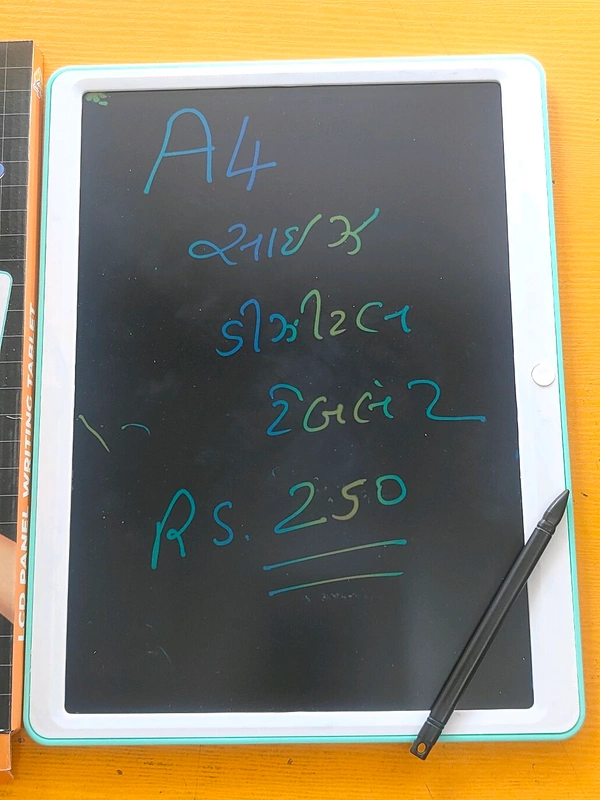 A4
સાઇઝ
ડીઝીટલ
ટેબલેટ
RS. 250
LCD PANEL WRITING TABLET